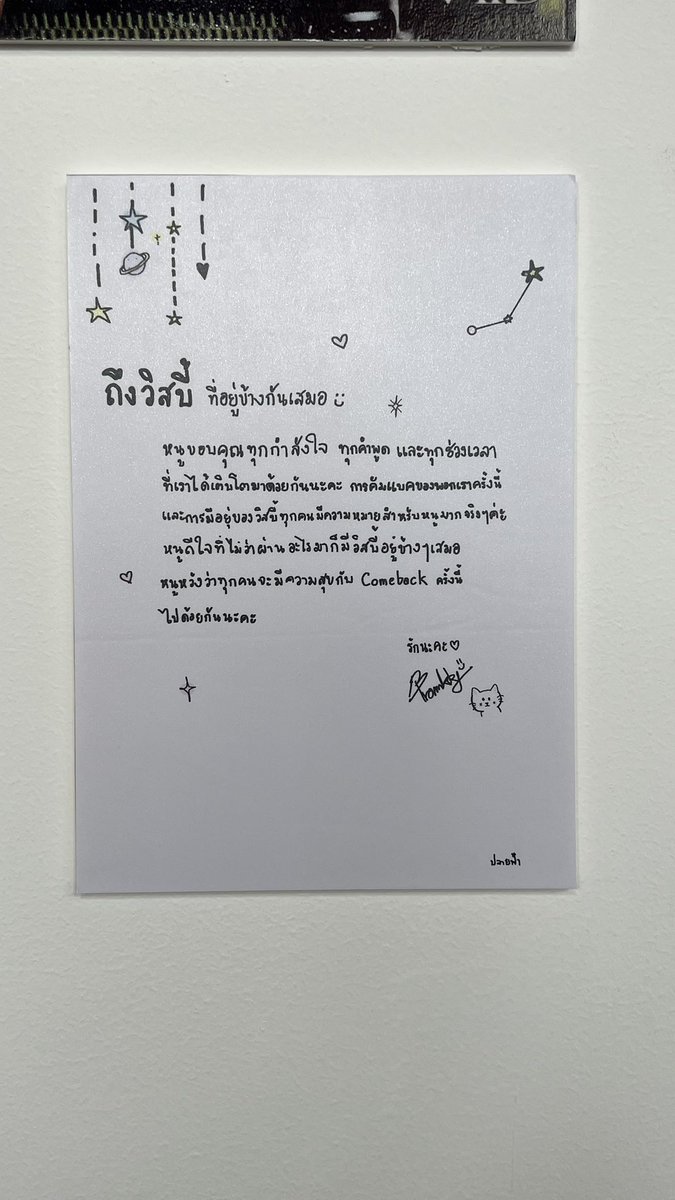 ถึงวิสบี้ ที่อยู่ข้างกันเสมอ :)
หนูขอบคุณทุกกำลังใจ ทุกคำพูด และทุกช่วงเวลา
ที่เราได้เติบโตมาด้วยกันนะคะ การคัมแบคของพวกเราครั้งนี้
และการมีอยู่ของวิสบี้ทุกคนมีความหมายสำหรับหนูมาก จริงๆค่ะ
หนูดีใจที่ไม่ว่าผ่านอะไรมาก็มีวิสบี้อยู่ข้างๆเสมอ
หนูหวังว่าทุกคนจะมีความสุขกับ Comeback ครั้งนี้
ไปด้วยกันนะคะ
รักนะคะ ♡
ปลายฟ้า